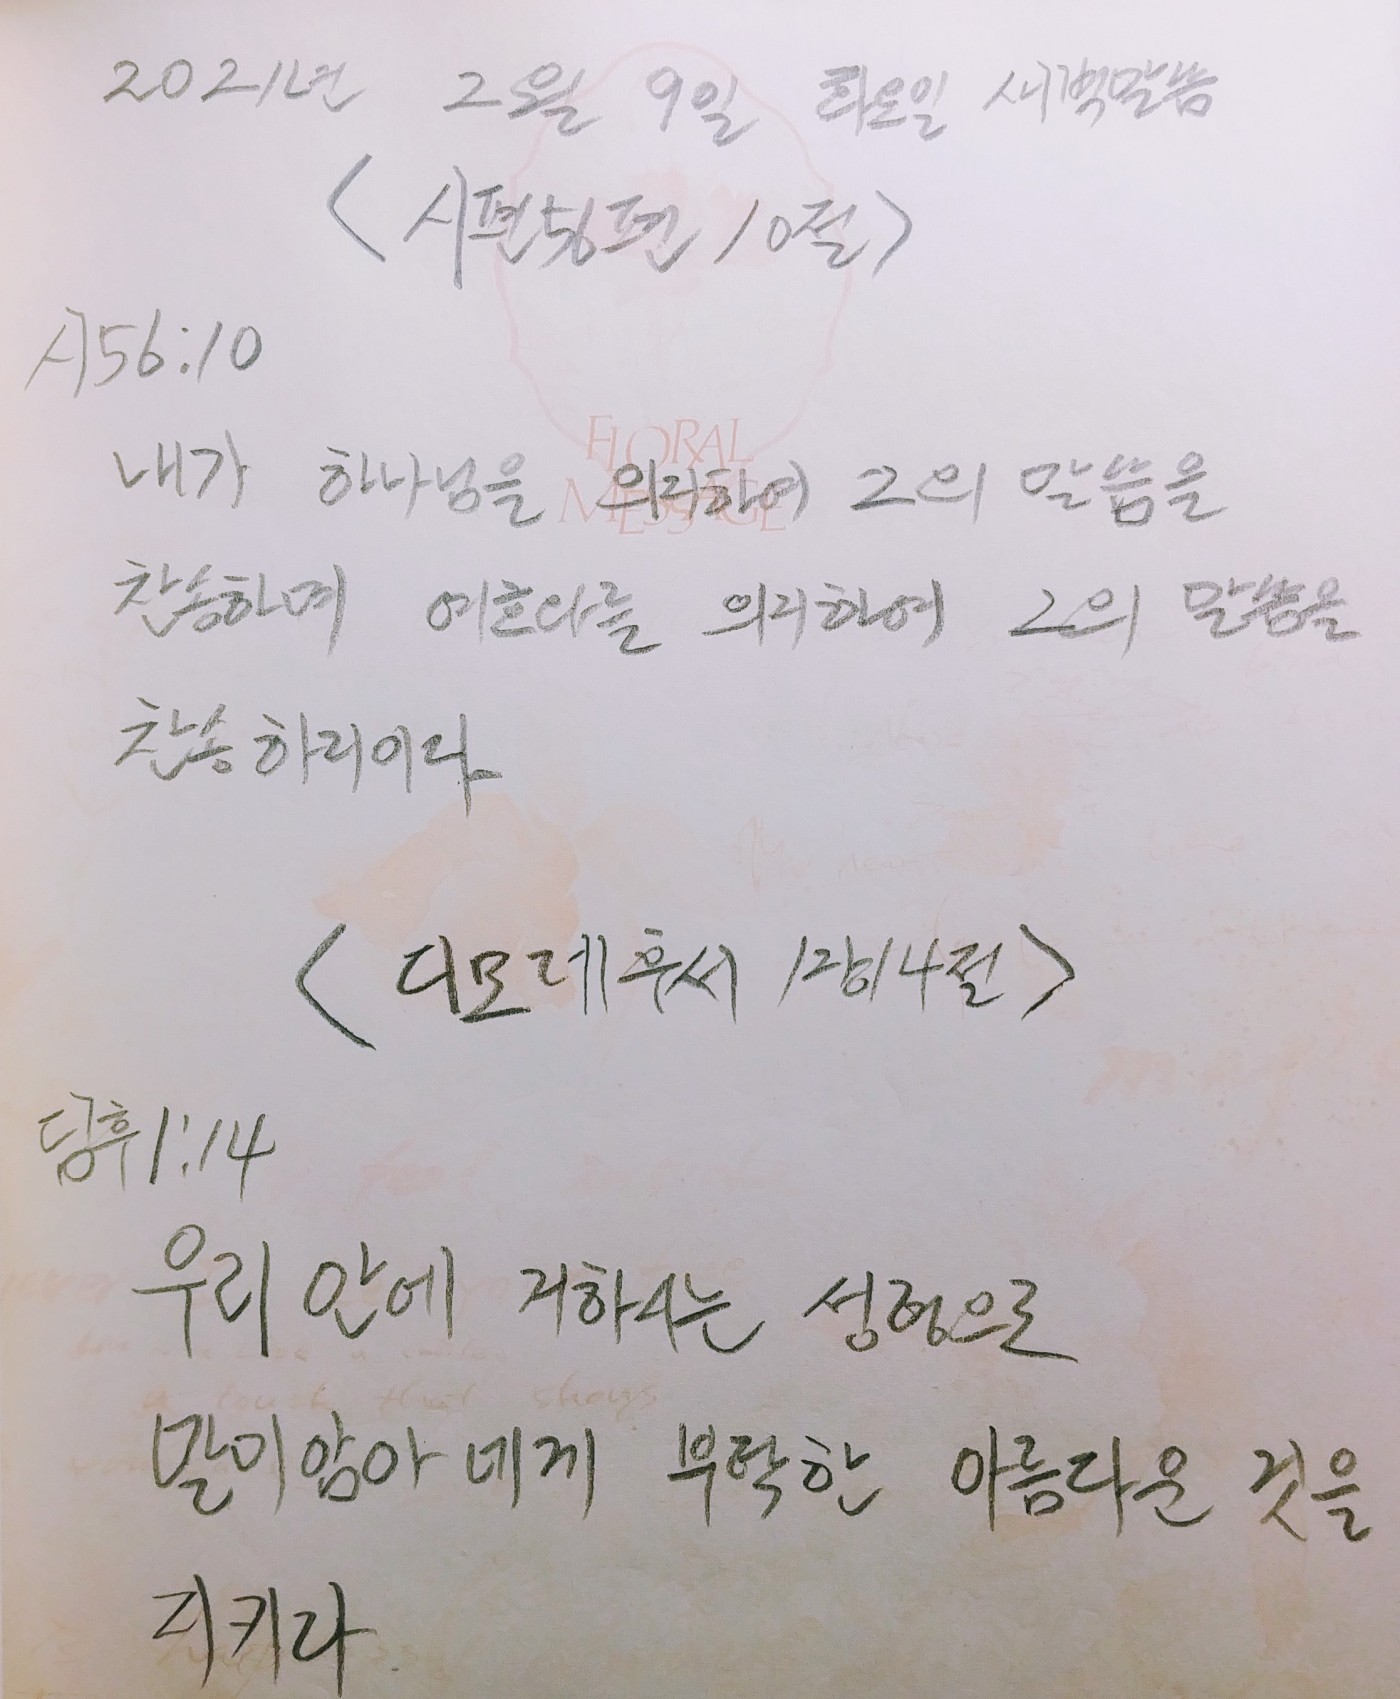 2021년 2월 9일 화요일 새벽말씀
<시편56편 10절>
시56:10
FLORAL
MESSAGE
내가 하나님을 의지하여 그의 말씀을
찬송하며 여호와를 의지하여 그의 말씀을
찬송하리이다
<디모데후서 1장14절>
딤후1:14
우리 안에 거하시는 성령으로
말미암아 네게 부탁한 아름다운 것을
지키라
a touch that stays